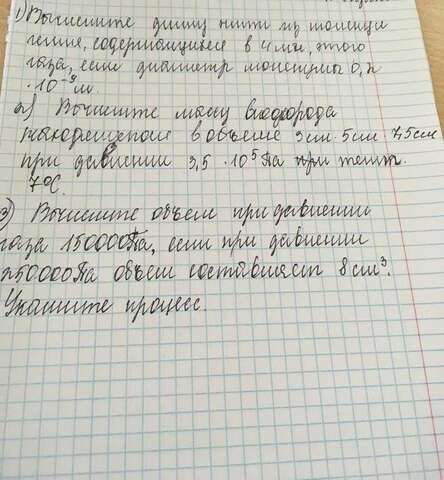 1) Вычислите длину нити из молекул
гелия, содержащихся в 4 мл, этого
газа, если диаметр молекулы 0,2
· 10⁻⁹ м.
2) Вычислите массу водорода
находящегося в объеме 3см · 5см · 7,5см
при давлении 3,5 · 10⁵ Па при темп.
7°C.
3) Вычислите объем при давлении
газа 150000Па, если при давлении
250000Па объем составляет 8 см³.
Укажите процесс.